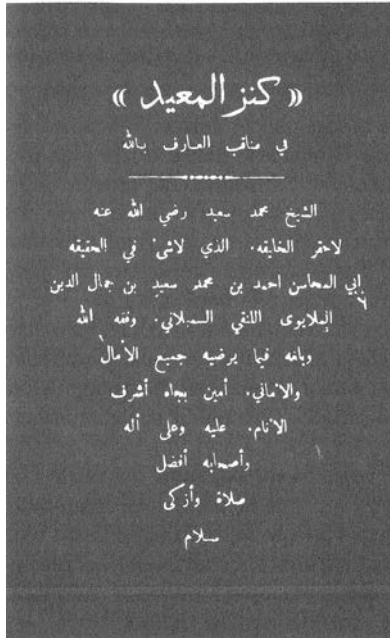 « كنز المعيد »
في مناقب العارف بالله
الشيخ محمد سعيد رضي الله عنه
لاحقر الخليقه. الذي لاشئ في الحقيقه
إبي المحاسن احمد بن محمد سعيد بن جمال الدين
الملايوى اللنقي السمبلاني. وفقه الله
وبلغه فيما يرضيه جميع الأمال
والأماني. أمين بجاه أشرف
الأنام. عليه وعلى أله
وأصحابه أفضل
صلاة وأزكى
سلام